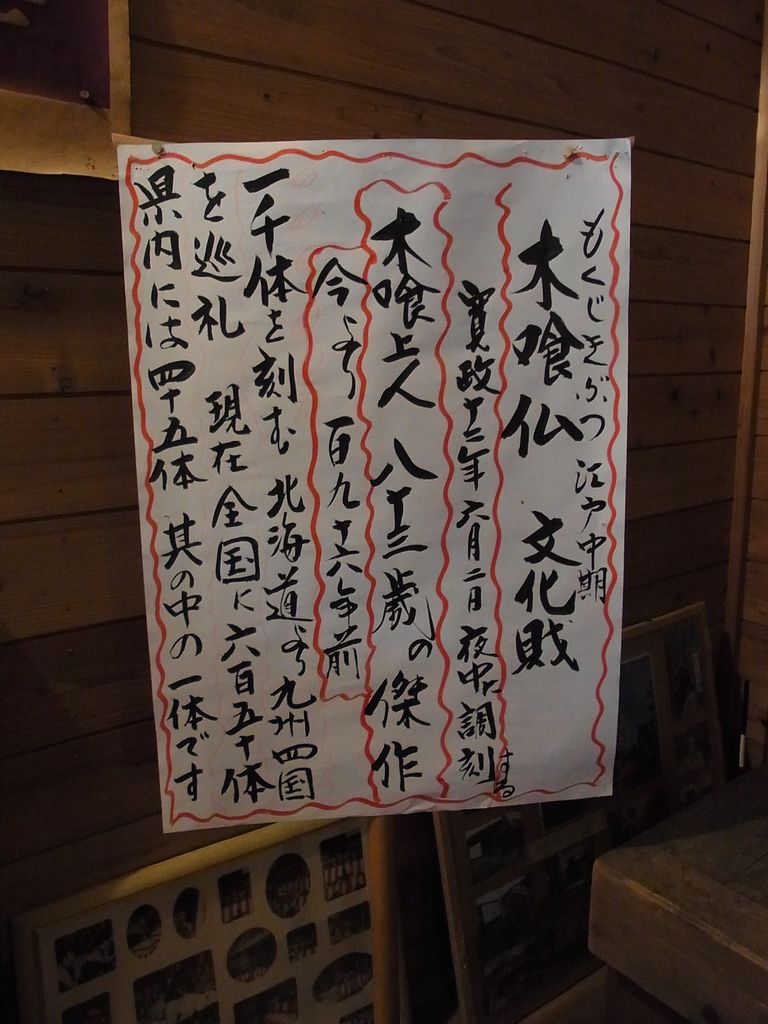 もくじきぶつ 江戸中期
木喰仏 文化財
寛政十二年 六月二日 夜中に調刻する
木喰上人 八十三歳の傑作
今より 百九十六年前
一千体を刻む 北海道より九州四国
を巡礼 現在 全国に六百五十体
県内には四十五体 其の中の一体です